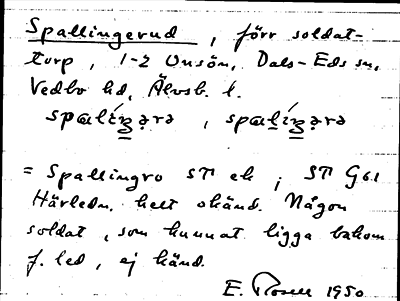 Spallingerud, förr soldat-
torp, 1-2 Onsön, Dals-Eds sn,
Vedbo hd, Älvsb. l.
spalíŋ̣ərə, spalíŋ̣ərə
= Spallingro ST ek; ST G61
Härledn. helt okänd. Någon
soldat, som kunnat ligga bakom
f. led, ej känd.
E. Rosell 1950